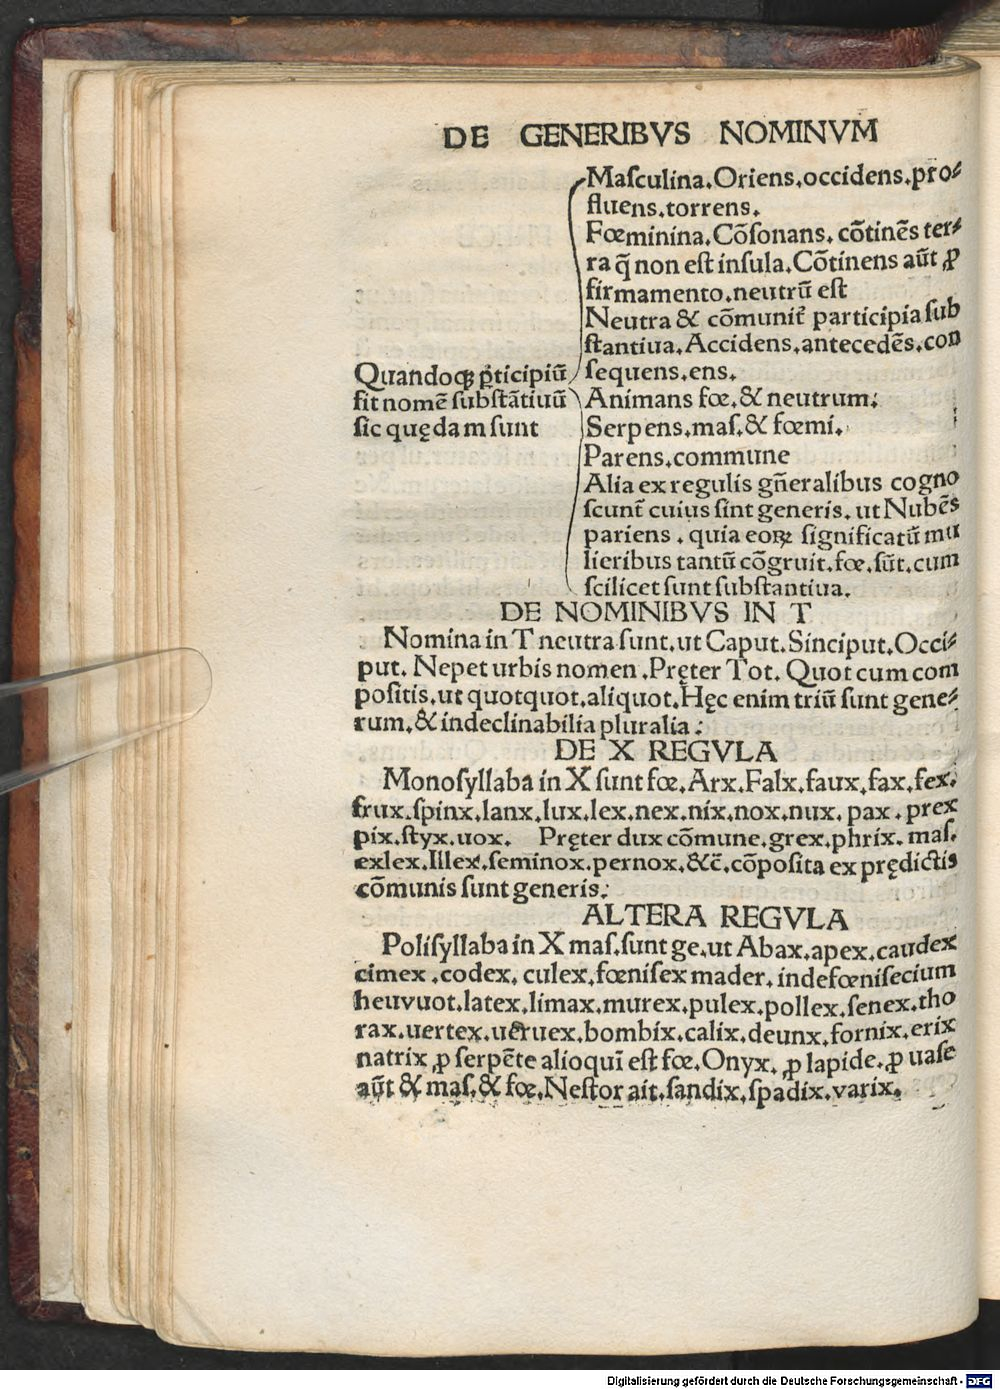 DE GENERIBVS NOMINVM
Maſculina.Oriens.occidens.pro⸗
fluens.torrens.
Fœminina.Cõſonans.cõtinẽs ter⸗
ra q̃ non eſt inſula.Cõtinens aũt ꝓ
firmamento.neutrũ eſt
Neutra & cõmunit̃ participia ſub
ſtantiua.Accidens.antecedẽs.con
ſequens.ens.
Quandoqꝫ ꝑticipiũ
fit nomẽ ſubſtãtiuũ
ſic quędam ſunt
Animans fœ.& neutrum:
Serpens.maſ.& fœmi.
Parens.commune
Alia ex regulis gñeralibus cogno
ſcunt̃ cuius ſint generis.ut Nubẽs
pariens.quia eoꝝ ſignificatũ mu
lieribus tantũ cõgruit.fœ.ſũt.cum
ſcilicet ſunt ſubſtantiua.
DE NOMINIBVS IN T
Nomina in T neutra ſunt.ut Caput.Sinciput.Occi⸗
put. Nepet urbis nomen.Pręter Tot. Quot cum com
poſitis.ut quotquot.aliquot.Hęc enim triũ ſunt gene⸗
rum.& indeclinabilia pluralia:
DE X REGVLA
Monoſyllaba in X ſunt fœ.Arx.Falx.faux.fax.fex.
frux.ſpinx.lanx.lux.lex.nex.nix.nox.nux.pax.prex
pix.ſtyx.uox. Pręter dux cõmune.grex.phrix.maſ.
exlex.Illex.ſeminox.pernox.&c̃.cõpoſita ex prędictis
cõmunis ſunt generis:
ALTERA REGVLA
Poliſyllaba in X maſ.ſunt ge.ut Abax.apex.caudex
cimex.codex.culex.fœniſex mader.indefœniſecium
heuvuot.latex.limax.murex.pulex.pollex.ſenex.tho
rax.uertex.ueruex.bombix.calix.deunx.fornix.erix
natrix ꝓ ſerpẽte alioquĩ eſt fœ.Onyx.ꝓ lapide.ꝓ uaſe
aũt & maſ.& fœ.Neſtor ait.ſandix.ſpadix.varix.
Digitalisierung gefördert durch die Deutsche Forschungsgemeinschaft - DFG